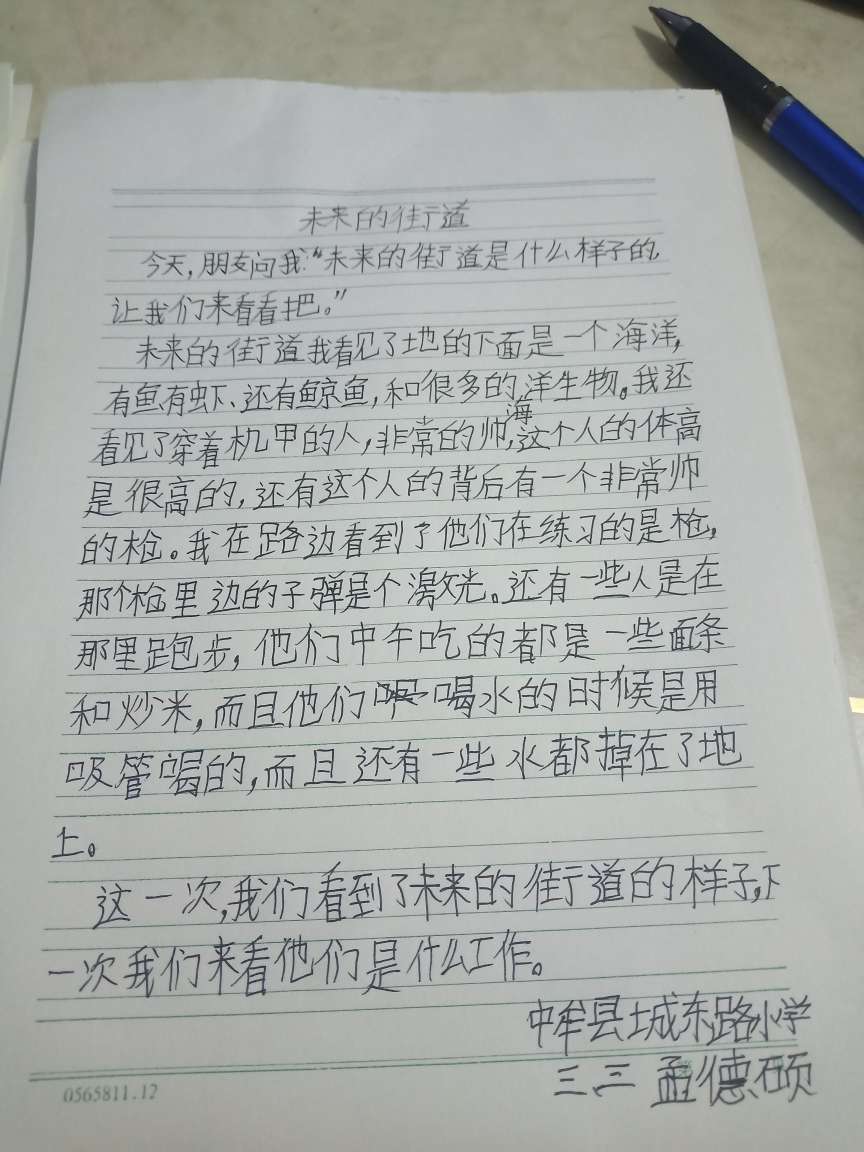 未来的街道
今天,朋友问我:“未来的街道是什么样子的,
让我们来看看把。”
未来的街道我看见了地的下面是一个海洋,
有鱼、有虾、还有鲸鱼,和很多的海洋生物。我还
看见了穿着机甲的人,非常的帅,这个人的体高
是很高的,还有这个人的背后有一个非常帅
的枪。我在路边看到了他们在练习的是枪,
那个枪里边的子弹是个激光。还有一些人是在
那里跑步,他们中午吃的都是一些面条
和炒米,而且他们喝水的时候是用
吸管喝的,而且还有一些水都掉在了地
上。
这一次,我们看到了未来的街道的样子,下
一次我们来看他们是什么工作。
中牟县城东路小学
三、三 孟德硕
0565811.12